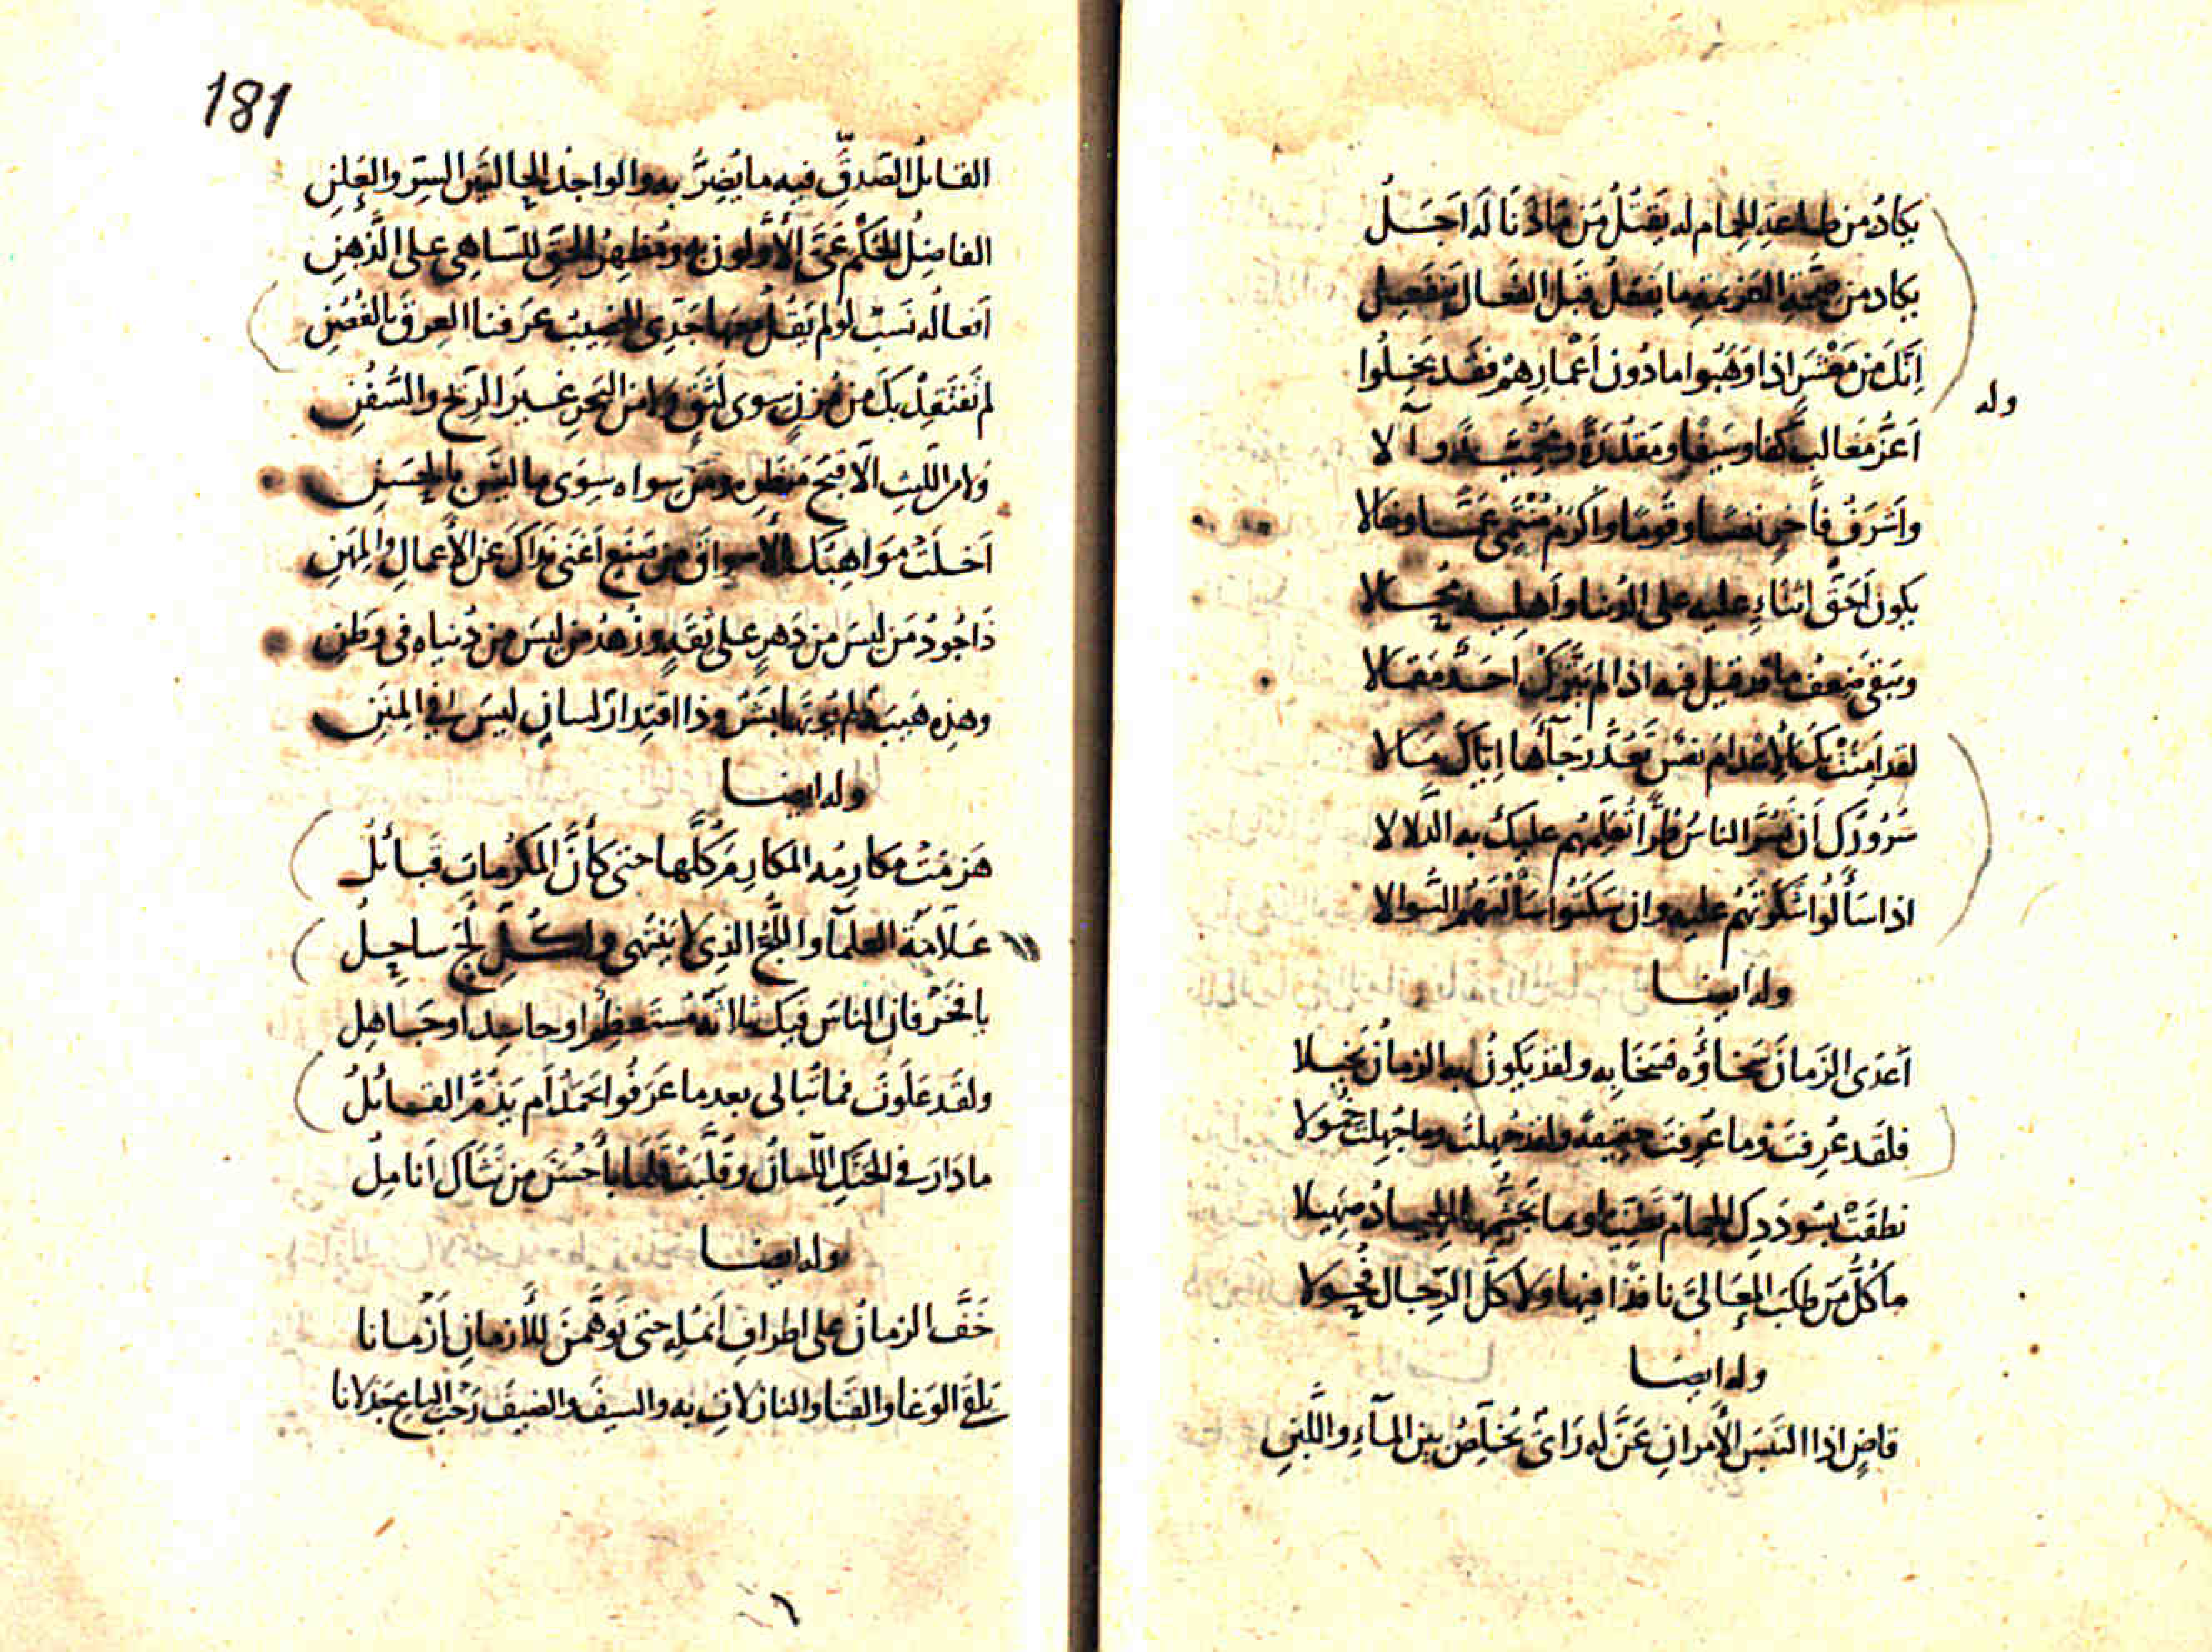 يكادُ من طاعةِ الحِمام له يَقتُلُ مَن مَا دَنَا لَه اَجَلُ
يكاد من صحّةِ العزيمةِ ما يَفعَلُ قَبلَ الفَعال يَنفَعِلُ
اِنّكَ مَن مَعْشَرٍ اذا وَهَبُوا ما دُون اَعْمارِهِمْ فقَد بَخِلُوا
وله
اَعَزُّ مُغالبٍ كَفّا وسَيفًا ومَقدُرَةً ومَحْمِيَّةً وآلا
واَشرَفُ فاخرٍ نَفسًا وقَومًا واَكرَمُ مُنْتَمٍى عَمًّا وخالا
يكون اَحَقُّ اثناءٍ عليه على الدُنيا واَهلِيه مُحَالا
ويَبقى ضِعفُ ما قد قيل فيه اذا لم يَتّرِكْ اَحَدٌ مَقَالا
لقد اَمِنَتْ بكَ الاِعْدامَ نَفسٌ تَعُدُّ رَجآءَها اِيّاكَ مَالا
سُرُورُكَ اَن تَسُرَّ الناسَ طُرًّا تُعَلِّمُهُم عليكَ به الدَّلالا
اذا سَأَلُوا شَكَرتَهُم عليه وان سَكَتُوا سَأَلْتَهُمُ السُّوالا
وله ايضا
اَعدَى الزَمانَ سَخاؤُه فسَخَا به ولقد يَكونُ به الزمانُ بَخيلا
فلَقَد عُرِفتَ وما عُرِفتَ حقيقةً ولقد جُهِلتَ وما جُهِلتَ خُمولا
نطقَتْ بسُودَدِكَ الحمامُ تَغنّيًا وبما تُجَشِّمُها الجِيادُ صَهيلا
ما كُلُّ مَن طلَبَ المَعَالىَ نافذًا فيها ولا كلُّ الرِّجال فُحُولا
وله ايضا
قاضٍ اذا التَبَسَ الأمرانِ عَنَّ له رَاىٌ يُخَلِّصُ بين المآءِ واللَّبَنِ
181
القائلُ الصّدقَ فيه ما يُضِرُّ به والواحدُ الحالتَين السِّرِ والعَلَنِ
الفاضِلُ الحُكْمَ عَىَّ الأوَّلون به ومُظهِرُ الحَقِّ للسّاهى على الذَّهِنِ
اَفعالُه نَسَبٌ لو لم يَقُلْ معَها جَدّى الخَصيبُ عَرَفنا العِرقَ بالغُصُنِ
لم تَفتَقِدْ بكَ من مُزنٍ سِوى لَثَقٍ ولا من البَحرِ غيرَ الرِّيحِ والسُّفُنِ
ولا من اللَّيثِ الاّ قُبحَ مَنظَرِه ومن سواه سِوَى ما ليسَ بالحَسَنِ
اَخلَتْ مَوَاهِبُكَ الأسواقَ من صَنَعٍ اَغنَى نَداكَ عَن الأعمالِ والمِهَنِ
ذا جُودُ مَن ليسَ من دَهرٍ على ثقةٍ وزُهدُ من ليسَ من دُنياه فى وَطَنِ
وهَذِه هَيبَةٌ لم يُؤتَها بَشَرٌ وذا اقتِدارُ لسانٍ ليسَ فى المُنَنِ
وله ايضا
هَزمَتْ مكارِمُه المَكارِمَ كُلَّها حتى كأَنَّ المَكرُماتِ قَبائلُ
علاّمةُ العلمآءِ واللُّجُّ الذى لا يَنتَهى ولكُلِّ لُجٍّ ساحِلُ
يا فخرُ فان الناسَ فيك ثلاثةٌ مُستَعظِمٌ او حاسِد او جاهِل
ولقَد عَلَوتَ فما تُبالى بعدما عَرَفُوا اَيَحمَدُ اَم يَذُمُّ القائلُ
ما دَارَ فى الحَنَكِ اللّسانُ وقلَّبَت قلَمًا بأَحْسَنَ من نَثَاكَ اَنامِلُ
وله ايضا
خَفَّ الزمانُ على اطرافِ اَنمُلِه حتى تُوُهِّمنَ للأَزمانِ اَزمانا
يَلقَى الوَغا والقَنا والنازلاتِ به والسيفَ والضيفَ رَحْبَ الباعِ جَذلانا